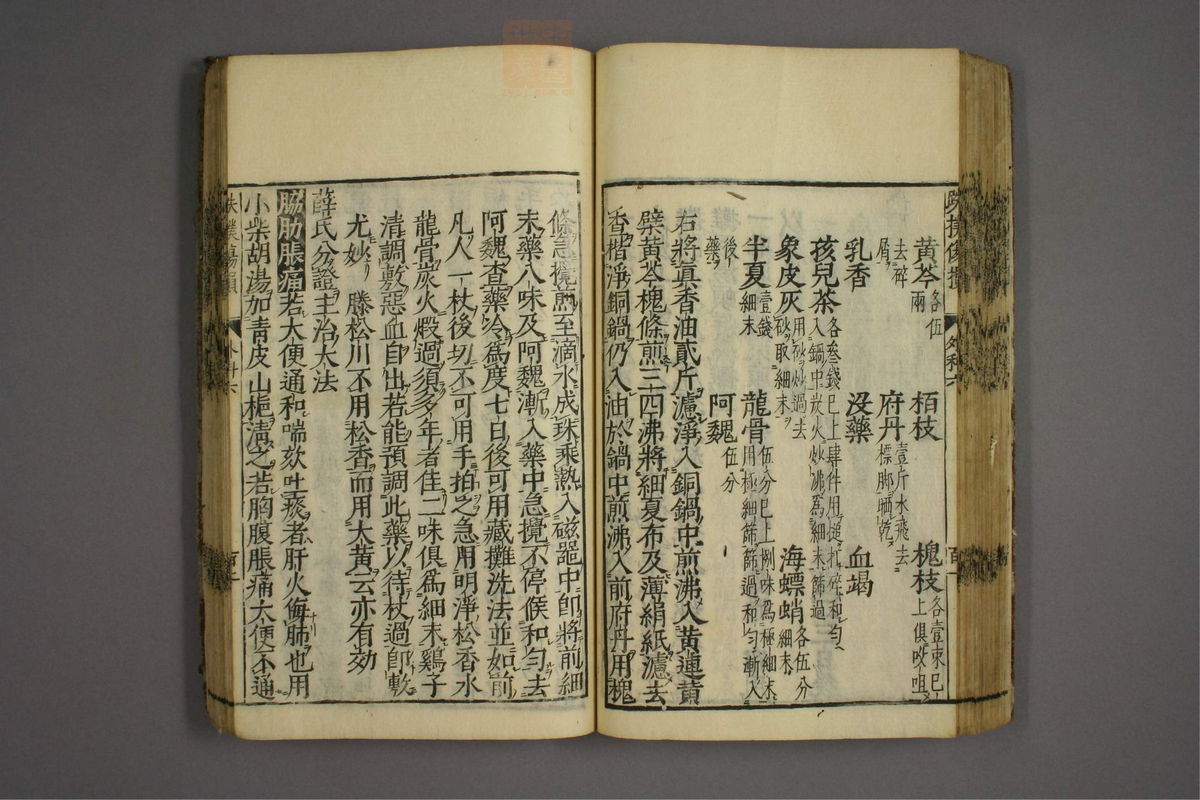 黄芩各伍兩　栢枝　槐枝各壹束已上俱㕮咀
去碎屑　府丹壹斤水飛去標脚晒乾
乳香　没藥　血竭
孩兒茶各叁錢已上肆件用搥打碎和勻入鍋中炭火炒沸為細末篩過
象皮灰用砂炒過去砂取細末　海螵蛸各伍分細末
半夏壹錢細末　龍骨伍分已上捌味為極細末用極細篩篩過和勻漸入
後藥　阿魏伍分
右將眞香油貳斤濾淨入銅鍋中煎沸入黄連黄
檗黄芩槐條煎三四沸將細夏布及薄絹紙濾去
香楷淨銅鍋仍入油於鍋中煎沸入前府丹用槐
條急攪煎至滴水成珠乘熱入磁器中即將前細
末藥八味及阿魏漸入藥中急攪不停候和勻去
阿魏查藥冷為度七日後可用藏攤洗法並如前
凡人一杖後切不可用手拍之急用明淨松香水
龍骨炭火煅過須多年者佳二味俱為細末鷄子
清調敷惡血自出若能預調此藥以待杖過即敷
尤妙　滕松川不用松香而用大黄云亦有効
薛氏分證主治大法
脇肋脹痛若大便通和喘欬吐痰者肝火侮肺也用
小柴胡湯加青皮山梔清之若胸腹脹痛大便不通